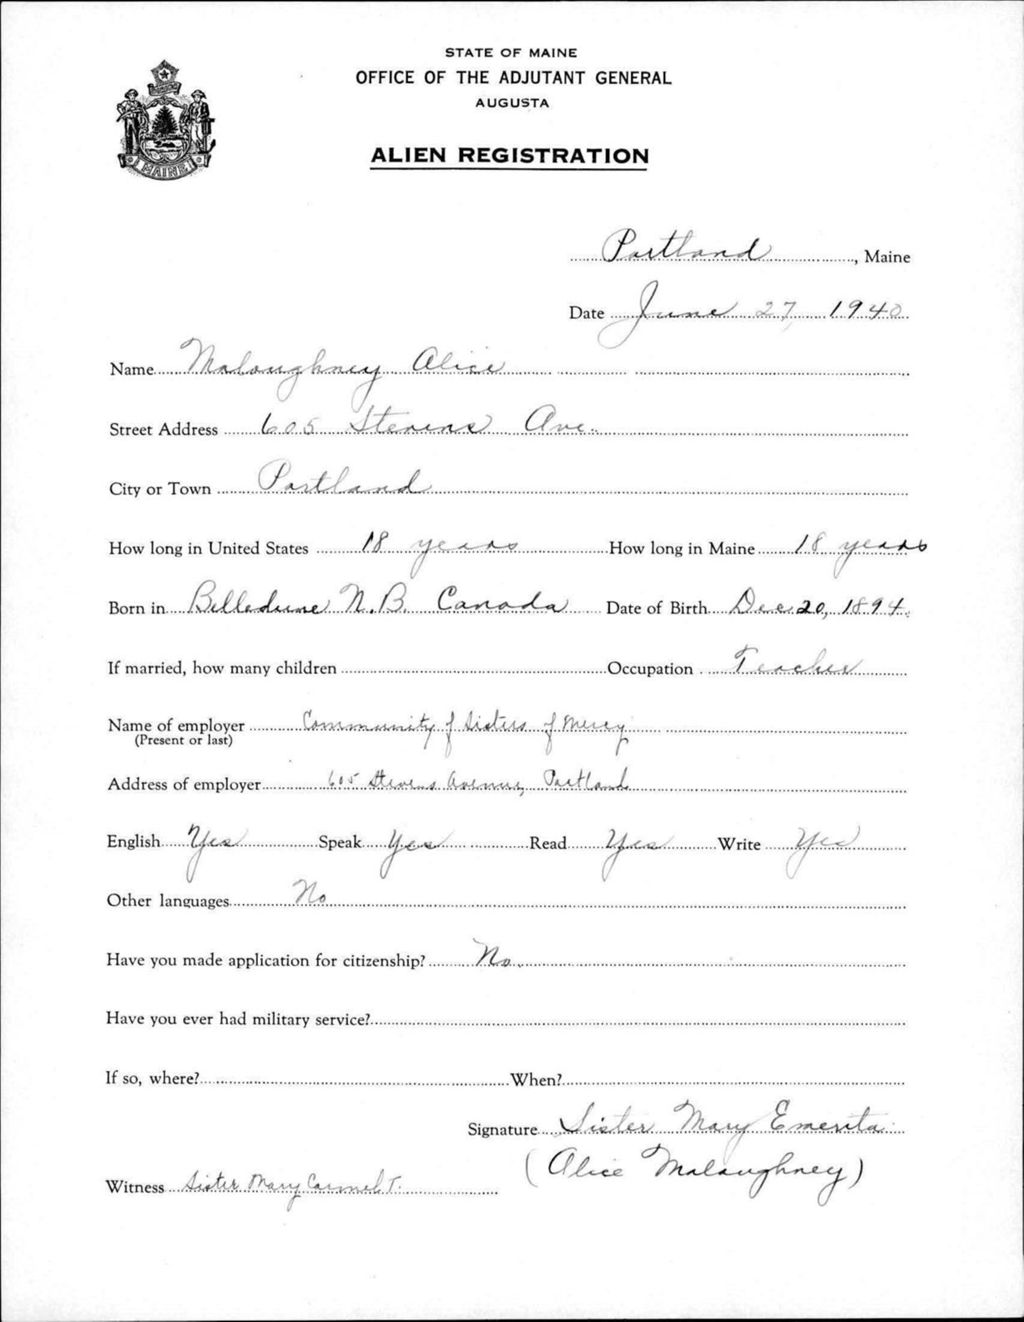 STATE OF MAINE
OFFICE OF THE ADJUTANT GENERAL
AUGUSTA
ALIEN REGISTRATION
MAINE
Portland, Maine
Date June 27, 1940
Name Malaughney Alice
Street Address 605 Stevens Ave.
City or Town Portland
How long in United States 18 years How long in Maine 18 years
Born in Belledune N.B. Canada Date of Birth Dec. 20, 1894.
If married, how many children Occupation Teacher
Name of employer Community of Sisters of Mercy
(Present or last)
Address of employer 605 Stevens Avenue, Portland
English Yes Speak Yes Read Yes Write Yes
Other languages No
Have you made application for citizenship? No.
Have you ever had military service?
If so, where? When?
Signature Sister Mary Emerita
(Alice Malaughney)
Witness Sister Mary Carmel T.